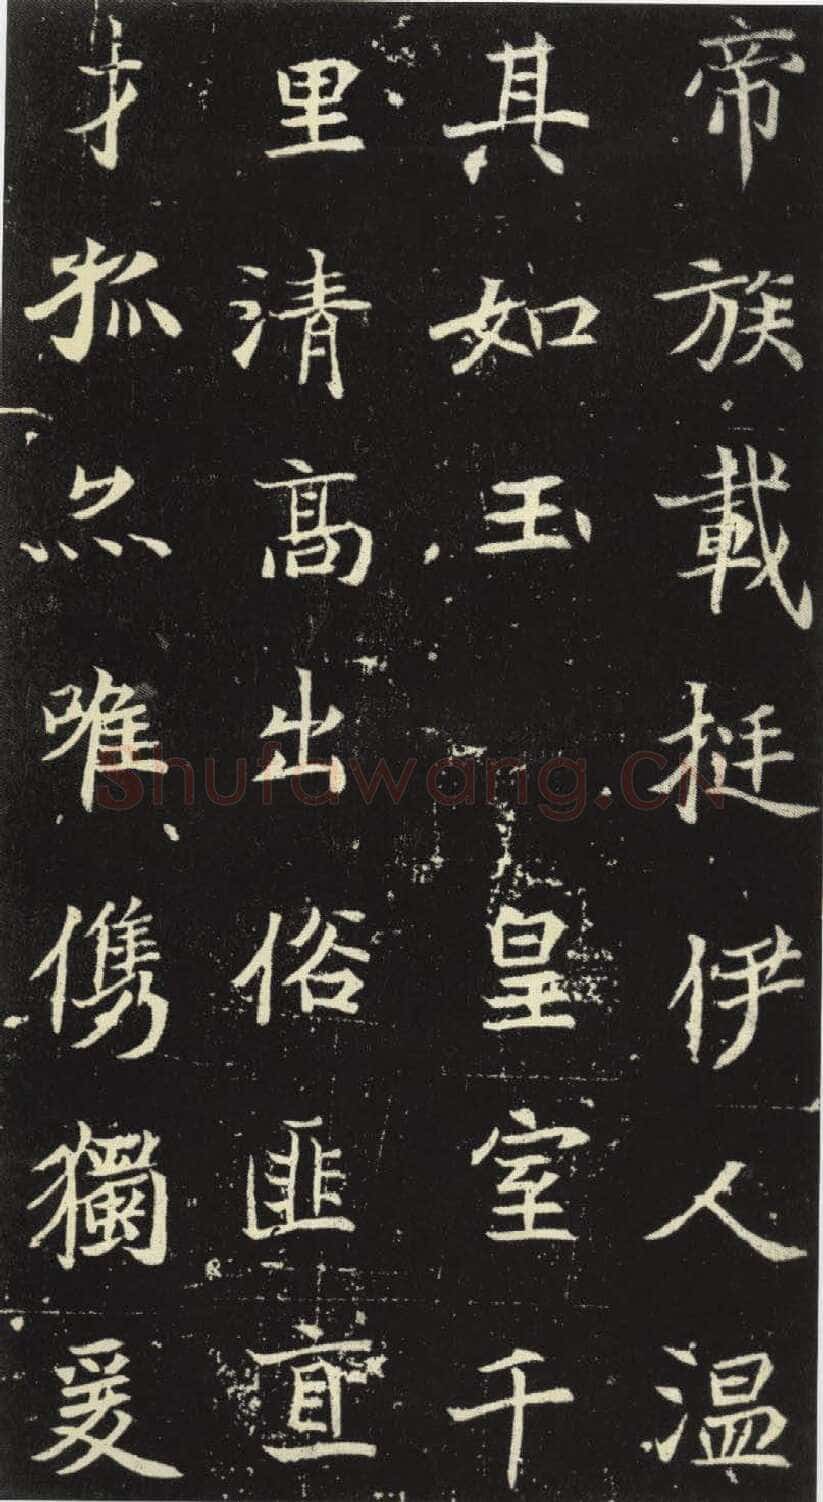 帝族載挺伊人溫
其如玉皇室千
里清高出俗匪直
唯儁獨爰
Shufawang.CN